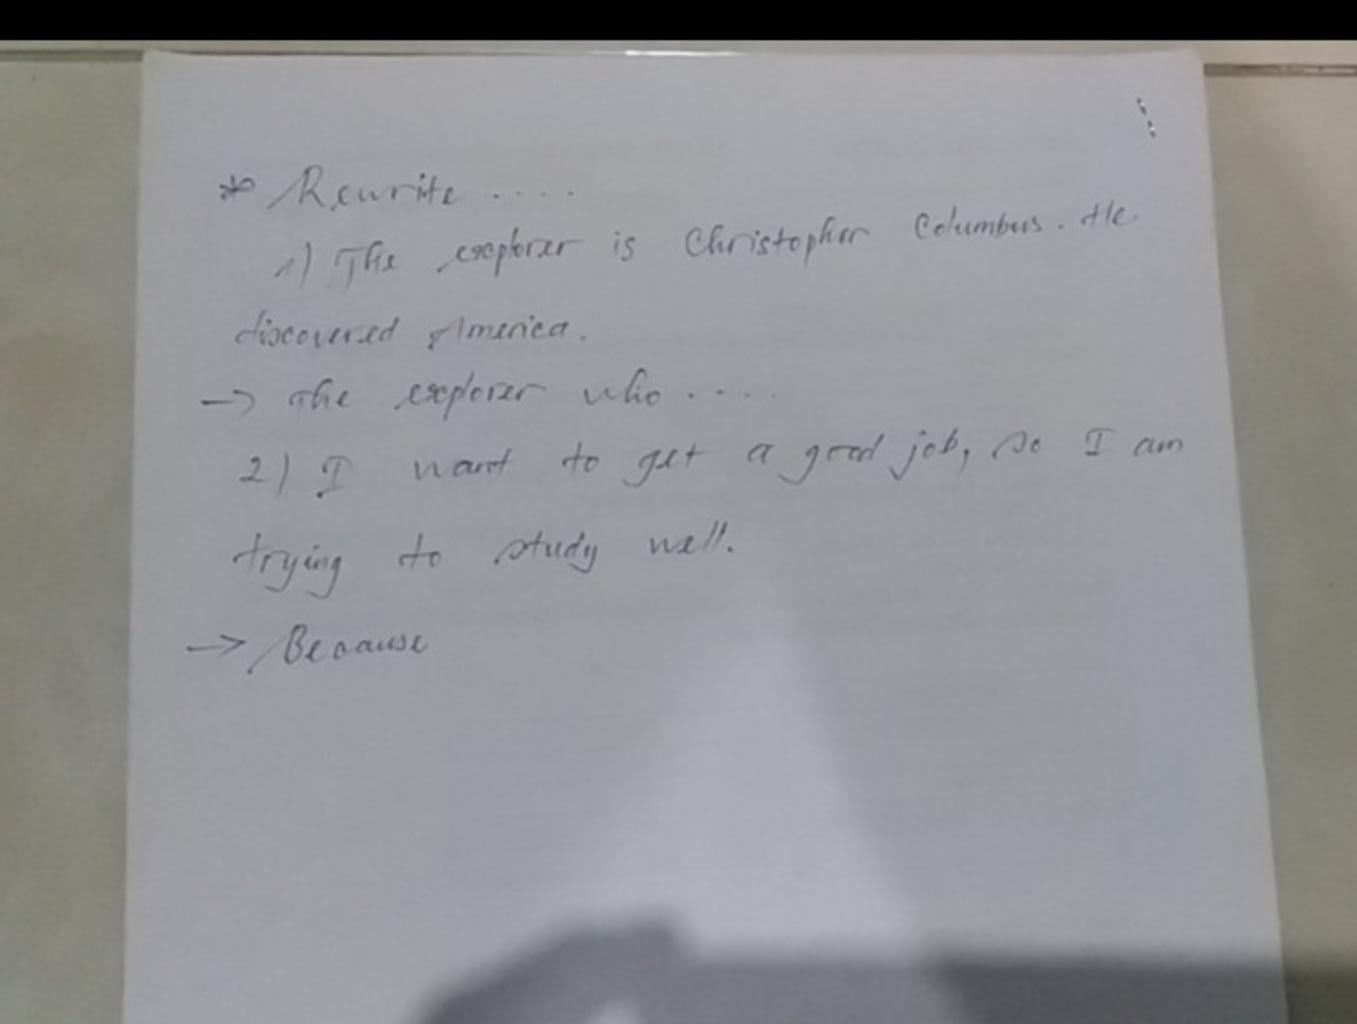 * Rewrite ....
1) The explorer is Christopher Columbus. He
discovered America.
→ The explorer who ....
2) I want to get a good job, so I am
trying to study well.
→ Because